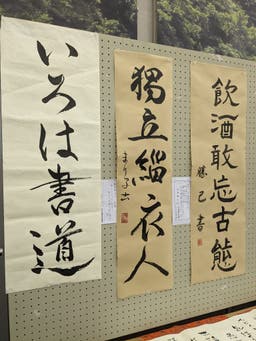 飲酒敢忘古態
勝己書
獨立緇衣人
まり子書
いろは書道